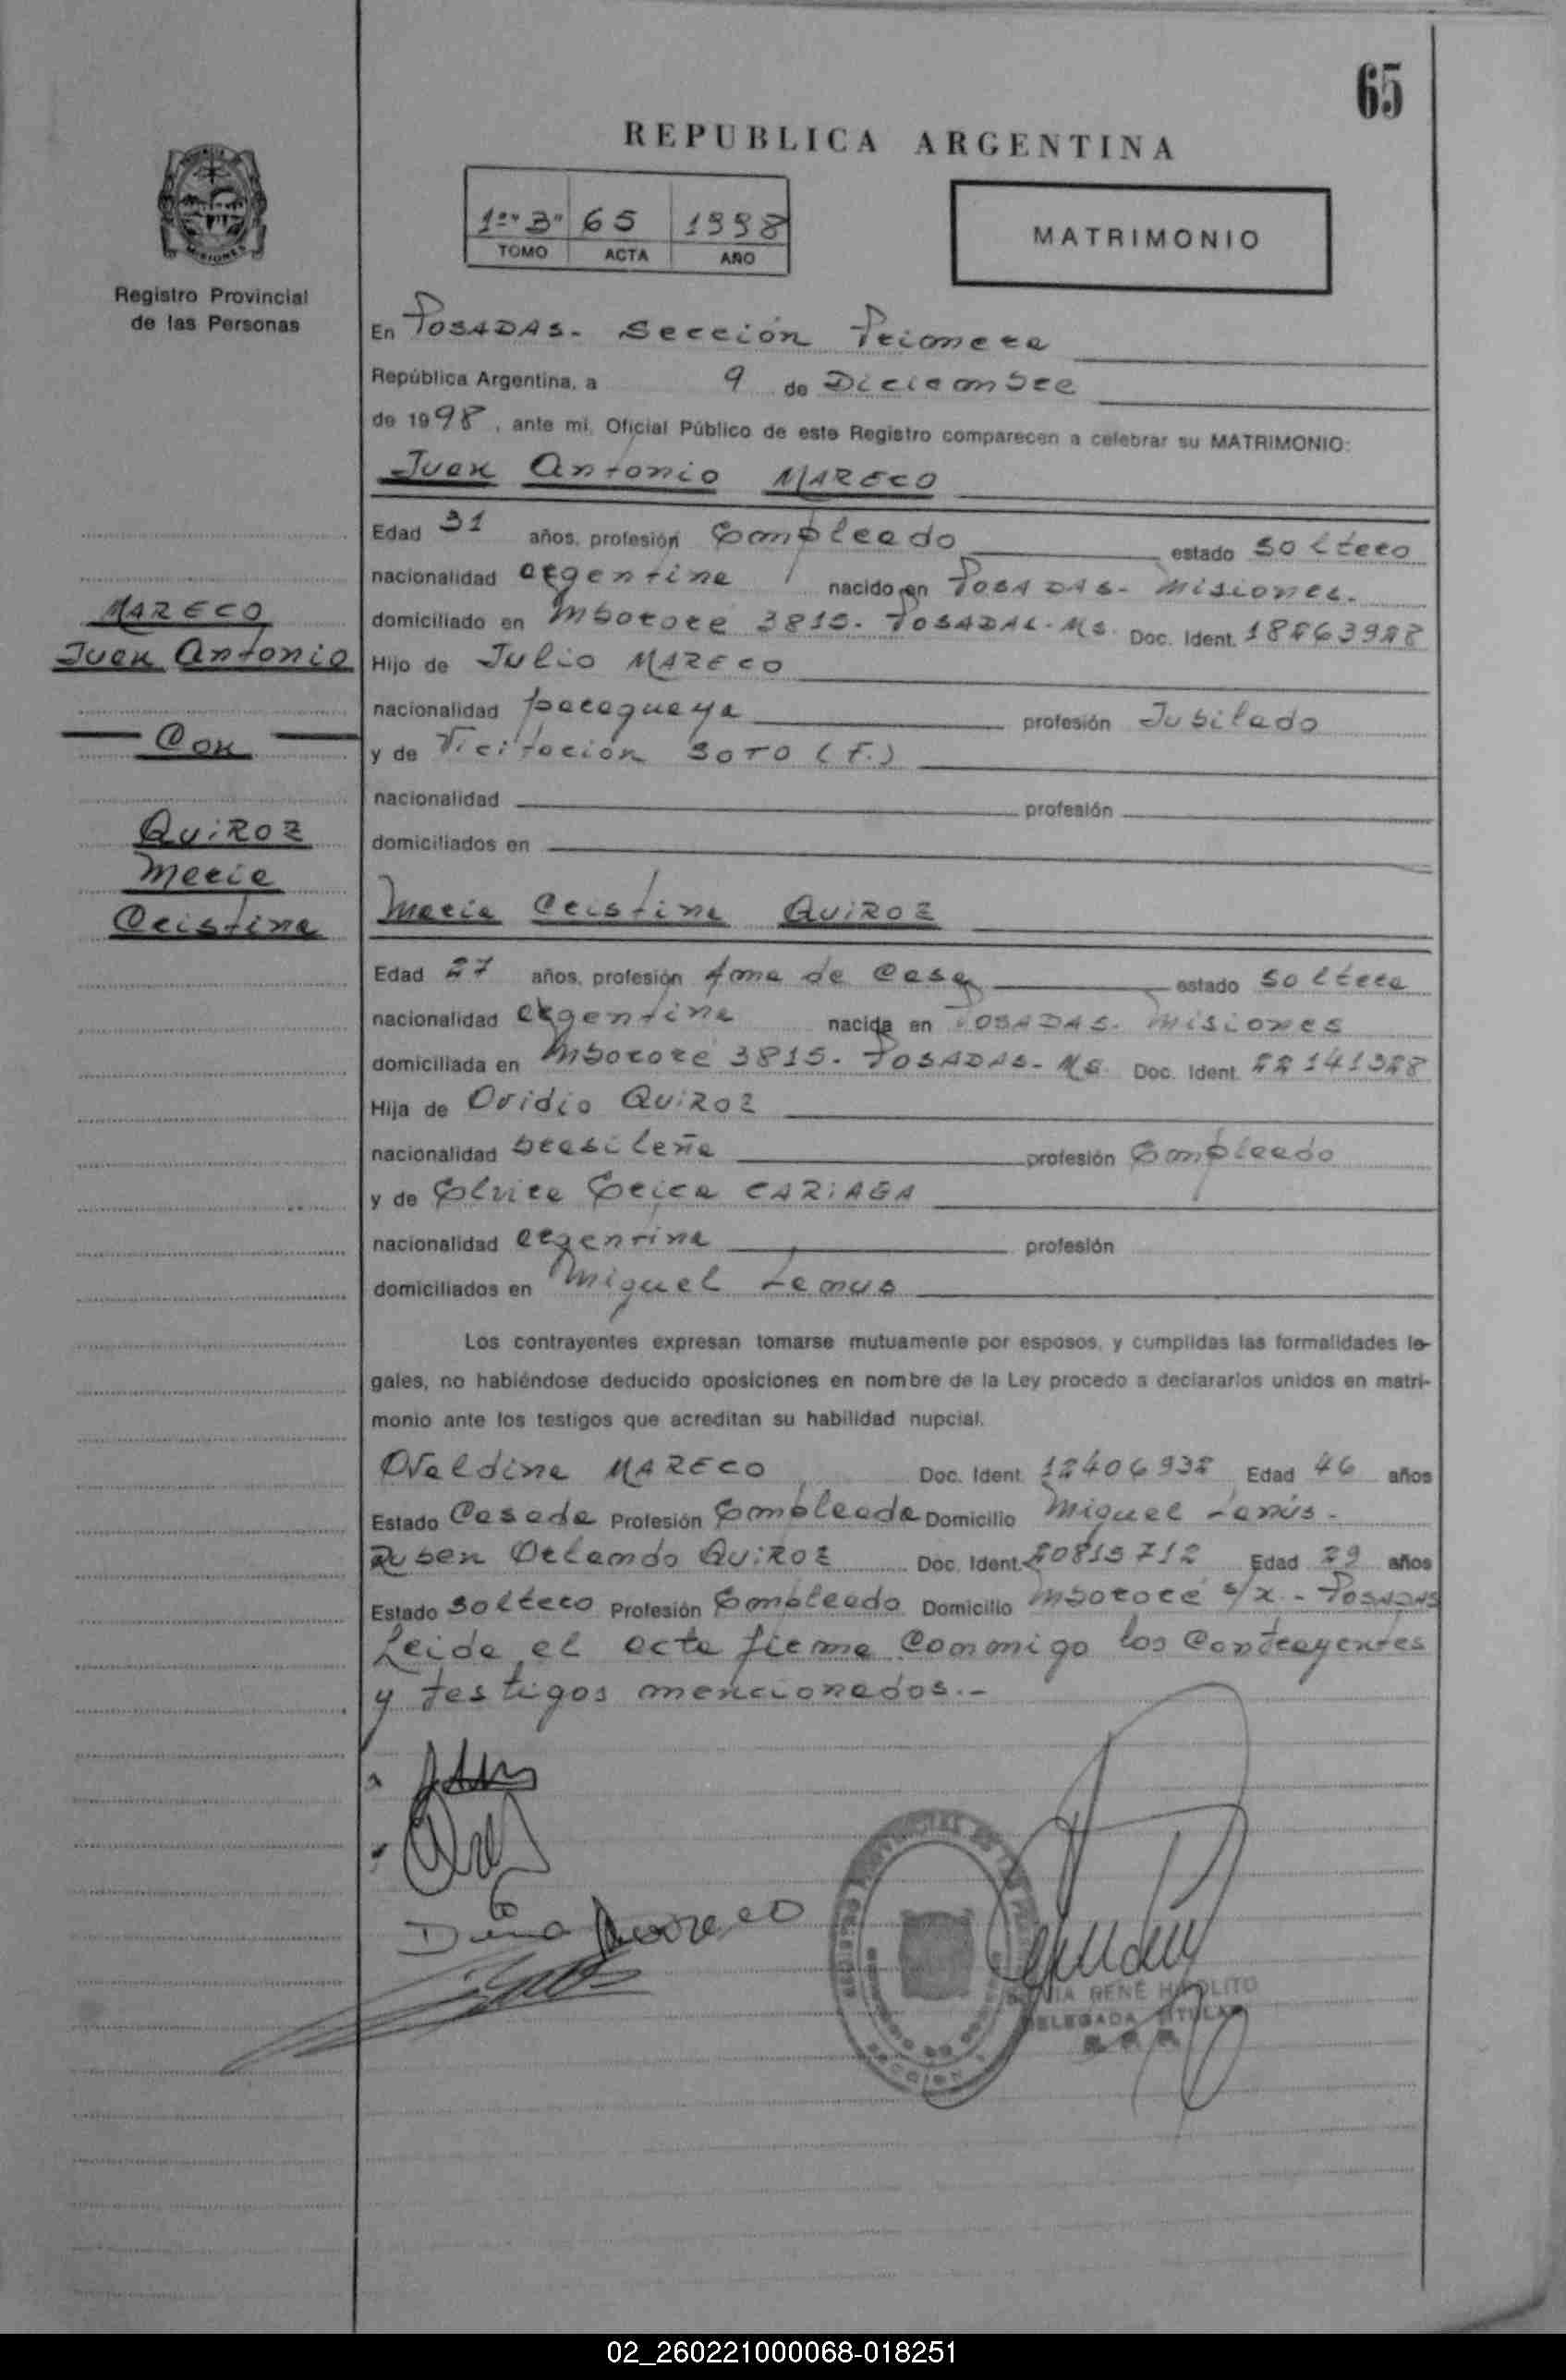 65
REPUBLICA ARGENTINA
1º "B" 65 1998
TOMO ACTA AÑO
MATRIMONIO
Registro Provincial
de las Personas
En POSADAS - Sección Primera
República Argentina, a 9 de Diciembre
de 1998, ante mi, Oficial Público de este Registro comparecen a celebrar su MATRIMONIO:
Juan Antonio MARECO
Edad 31 años, profesión Empleado estado soltero
nacionalidad argentina nacido en POSADAS - Misiones.
domiciliado en Mbororé 3815 - POSADAS - Ms. Doc. Ident.
Hijo de Julio MARECO
nacionalidad paraguaya profesión Jubilado
y de Vicitación SOTO (F.)
nacionalidad profesión
domiciliados en
MARECO
Juan Antonio
Con
QUIROZ
Maria
Cristina
Maria Cristina QUIROZ
Edad 27 años, profesión Ama de Casa estado soltera
nacionalidad argentina nacida en POSADAS - Misiones
domiciliada en Mbororé 3815 - POSADAS - Ms. Doc. Ident.
Hija de Ovidio QUIROZ
nacionalidad brasileña profesión Empleado
y de Elvira Erica CARIAGA
nacionalidad argentina profesión
domiciliados en Miguel Lanus
Los contrayentes expresan tomarse mutuamente por esposos, y cumplidas las formalidades le-
gales, no habiéndose deducido oposiciones en nombre de la Ley procedo a declararlos unidos en matri-
monio ante los testigos que acreditan su habilidad nupcial.
Ovaldina MARECO Doc. Ident. 12406932 Edad 46 años
Estado Casada Profesión Empleada Domicilio Miguel Lanús -
Ruben Orlando QUIROZ Doc. Ident. 20815712 Edad 29 años
Estado Soltero Profesión Empleado Domicilio Mbororé s/n - POSADAS
Leida el acta firma conmigo los contrayentes
y testigos mencionados.-
Dina Mareco
RENE HIPOLITO
DELEGADA TITULAR
02_260221000068-018251